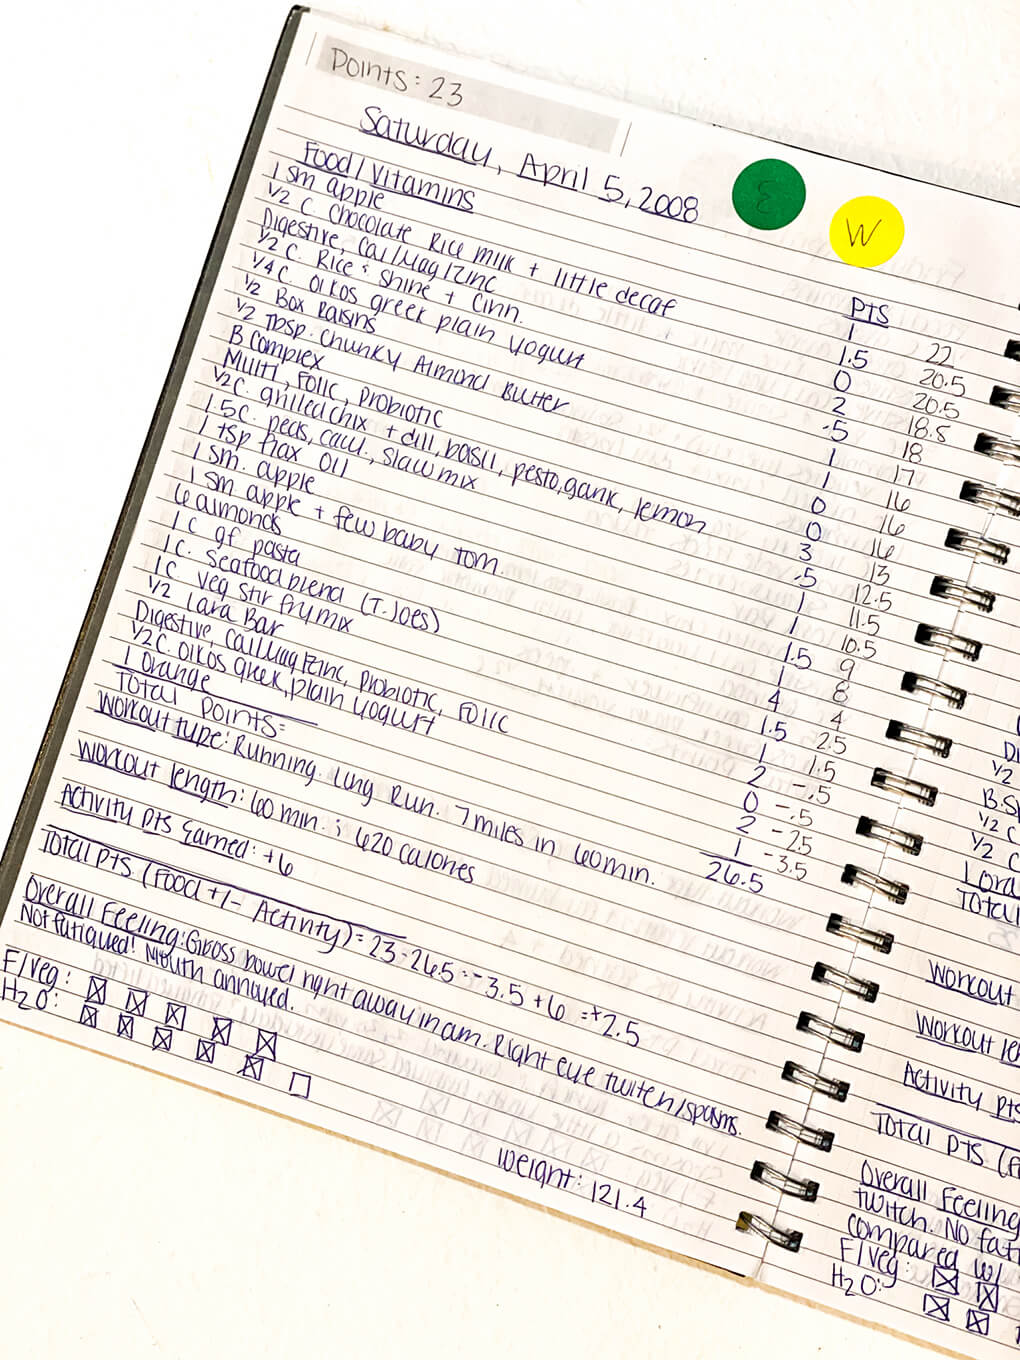 Points: 23
Saturday, April 5, 2008
E
W
Food/Vitamins PTS
1 sm apple 1 22
1/2 C. Chocolate Rice milk + little decaf 1.5 20.5
Digestive, Cal/Mag/Zinc 0 20.5
1/2 C. Rice & Shine + Cinn. 2 18.5
1/4 C. Oikos greek plain yogurt .5 18
1/2 Box Raisins 1 17
1/2 Tbsp. Chunky Almond Butter 1 16
B Complex 0 16
Multi, Folic, Probiotic 0 16
1/2 C. grilled chix + dill, basil, pesto, garlic, lemon 3 13
1.5 C. peas, cauli., slaw mix .5 12.5
1 tsp flax oil 1 11.5
1 sm. apple 1 10.5
1 sm apple + few baby tom. 1.5 9
6 almonds 1 8
1 C gf pasta 4 4
1 C. Seafood blend (T. Joes) 1.5 2.5
1 C veg stir fry mix 1 1.5
1/2 Lara Bar 2 -.5
Digestive, Cal/Mag/Zinc, Probiotic, Folic 0 -.5
1/2 C. Oikos greek, plain yogurt 2 -2.5
1 orange 1 -3.5
Total Points: 26.5
Workout type: Running. Long Run. 7 miles in 60 min.
Workout length: 60 min. ; 620 calories
Activity pts Earned: +6
Total pts (Food +/- Activity) = 23-26.5 = -3.5 + 6 = +2.5
Overall Feeling: Gross bowel right away in am. Right eye twitch/spasms.
Not fatigued! Mouth annoyed.
F/Veg:
H2O:
weight: 121.4
D
1/2
B.S
1/2 C
1/2 C
1 ora
Total
Workout
Workout le
Activity pts
Total pts (F
Overall Feeling
twitch. No fat
compared w/
F/Veg:
H2O: